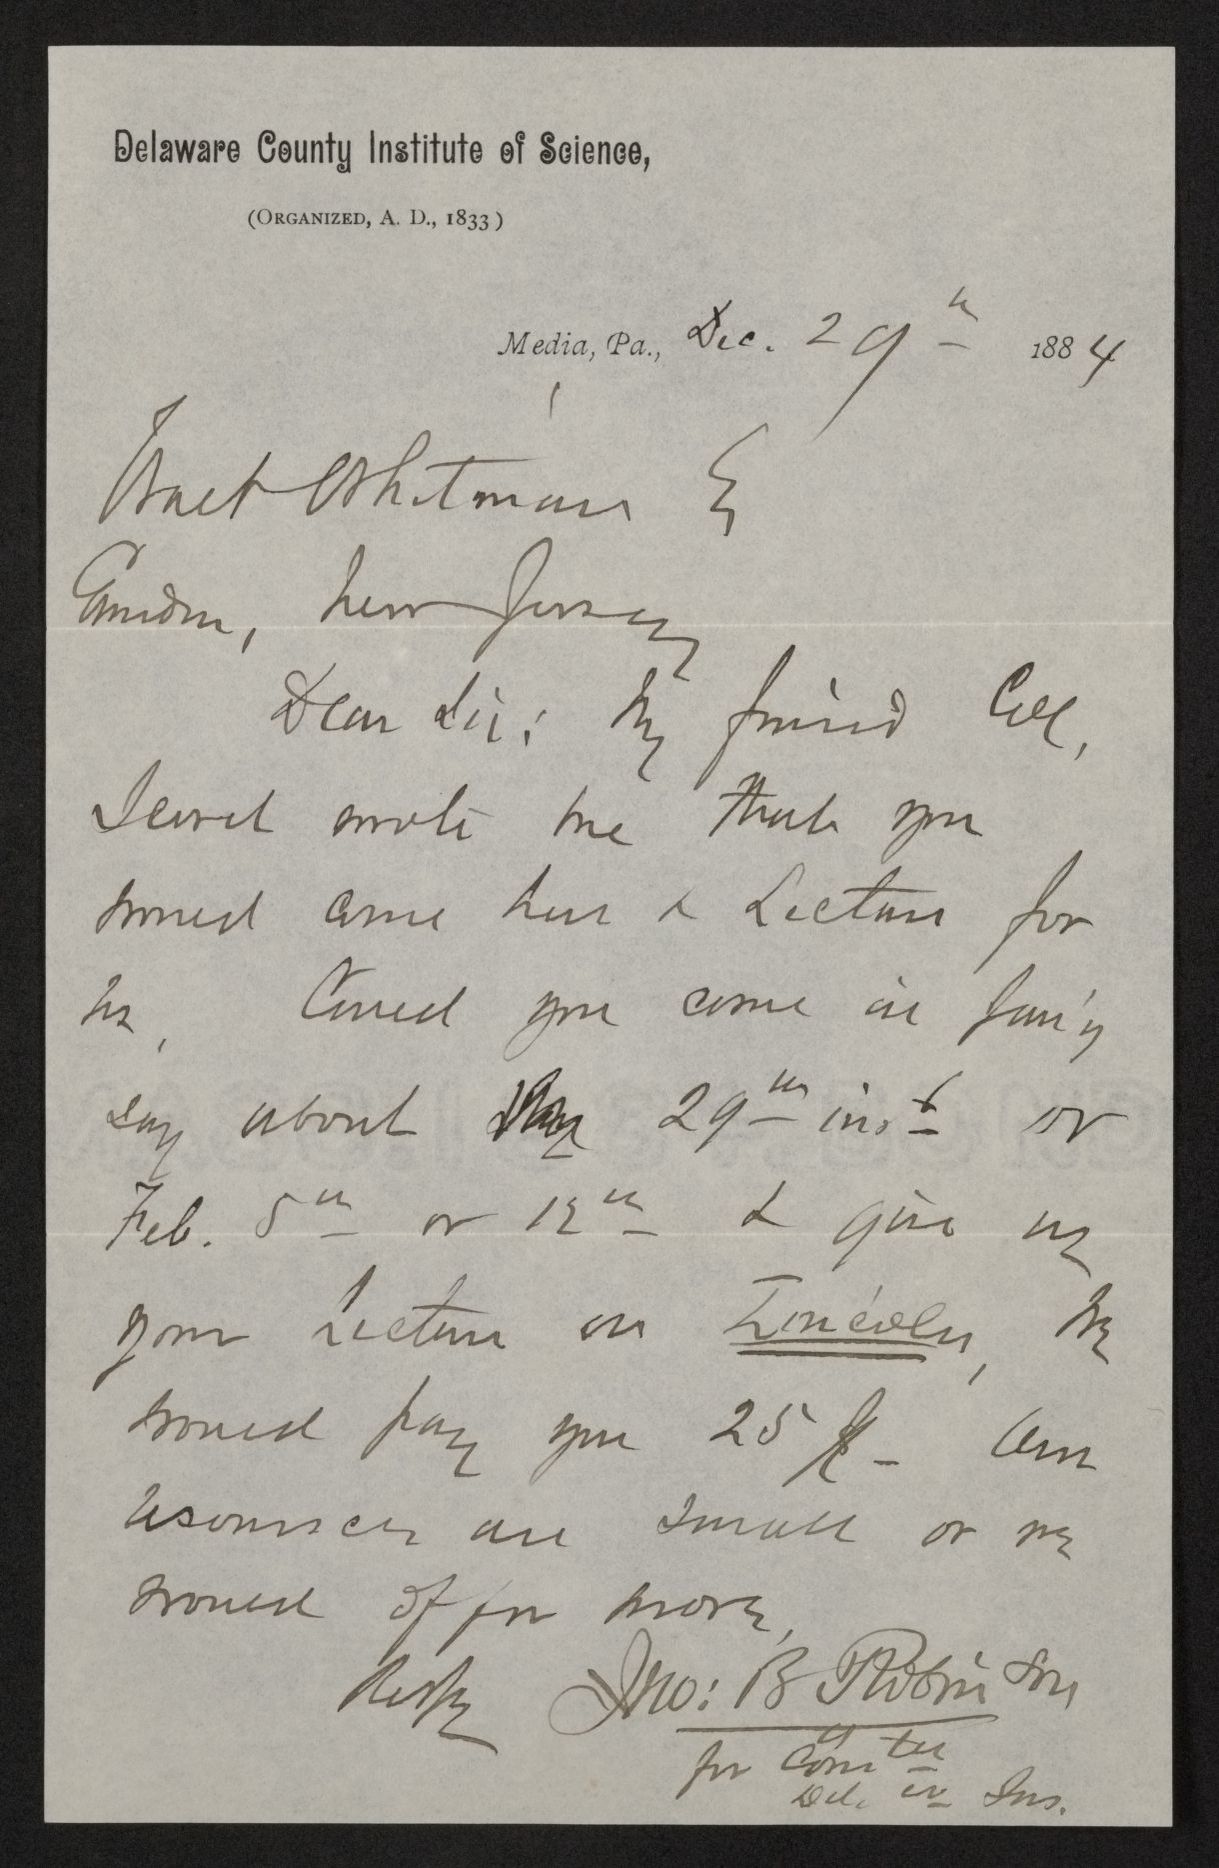 Delaware County Institute of Science,
(Organized, A. D., 1833)
Media, Pa., Dec. 29th 1884
Walt Whitman
Camden, New Jersey
Dear Sir: My friend Col,
wrote me that you
would come here & Lecture for
us. Could you come in Jan'y
say about 29th inst or
Feb. 5th or 12th & give us
your Lecture on Lincoln, We
would pay you 25 $ – Our
resources are small or we
would offer more,
Resfy Jno: B Robinson
for Comtee
Del. Co Ins.